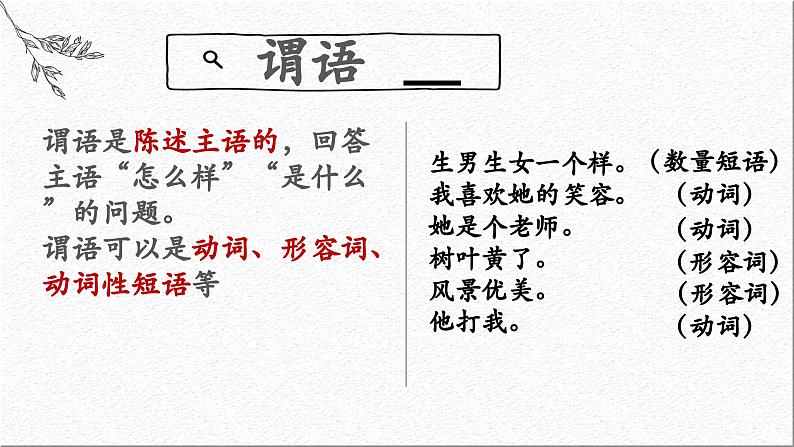 谓语
谓语是陈述主语的，回答
主语“怎么样”“是什么
”的问题。
谓语可以是动词、形容词、
动词性短语等
生男生女一个样。（数量短语）
我喜欢她的笑容。（动词）
她是个老师。（动词）
树叶黄了。（形容词）
风景优美。（形容词）
他打我。（动词）